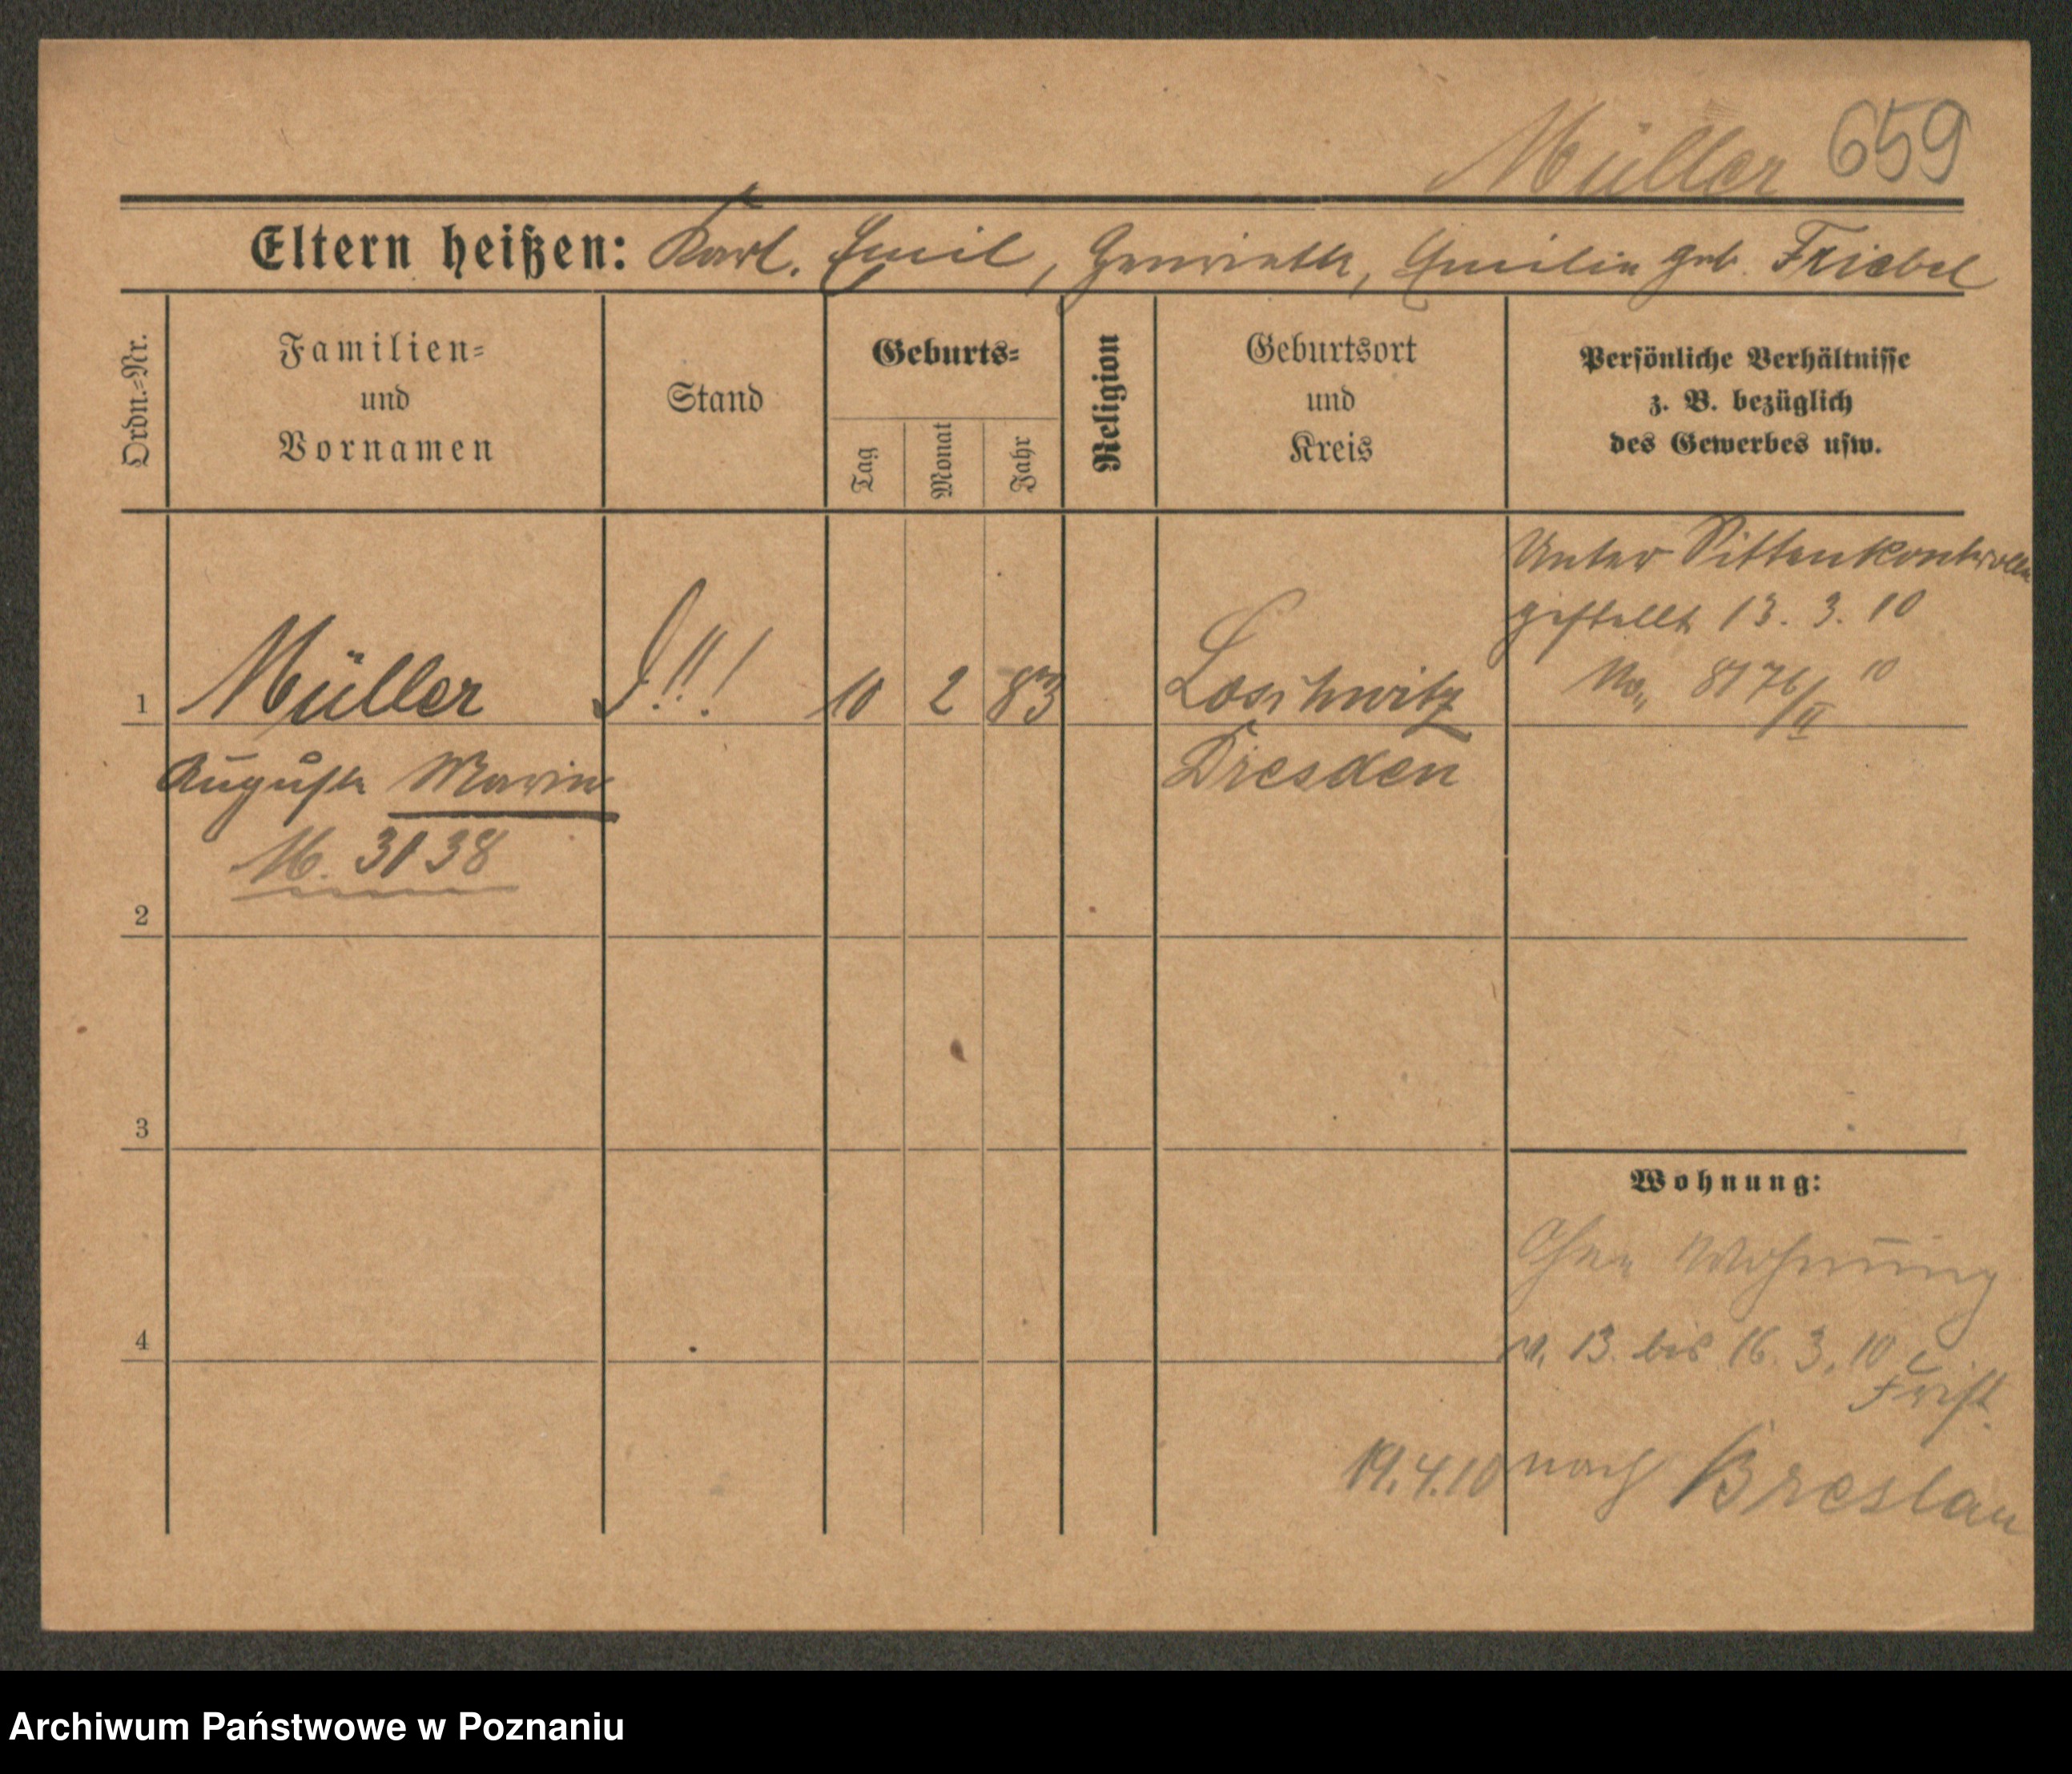 Müller 659
Eltern heißen: Karl. Emil, Henriette, Emilie geb. Friebel
Ordn.-Nr.
Familien-
und
Vornamen
Stand
Geburts-
Tag
Monat
Jahr
Religion
Geburtsort
und
Kreis
Persönliche Verhältnisse
z. B. bezüglich
des Gewerbes usw.
Unter Sittenkontrolle
gestellt 13. 3. 10
8176/II 10
1 Müller !!! 10 2 83 Loschwitz
Auguste Marie Dresden
M. 3138
2
3
Wohnung:
Ohne Wohnung
4
v. 13. bis 16. 3. 10
Frist.
19.4.10 nach Breslau
Archiwum Państwowe w Poznaniu